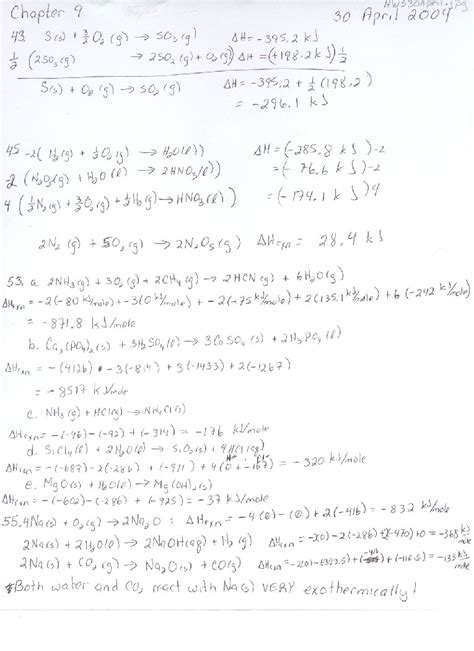 Chapter 9
HW330April.jpg
30 April 2004
43. S(s) + 3/2 O₂(g) → SO₃(g) ΔH = -395.2 kJ
1/2 (2SO₃(g) → 2SO₂(g) + O₂(g)) ΔH = (+198.2 kJ) 1/2
S(s) + O₂(g) → SO₂(g) ΔH = -395.2 + 1/2 (198.2)
= -296.1 kJ
45 -2( H₂(g) + 1/2 O₂(g) → H₂O(l)) ΔH = (-285.8 kJ)-2
-2 (N₂O₅(g) + H₂O(l) → 2HNO₃(l)) = (-76.6 kJ)-2
4 (1/2 N₂(g) + 3/2 O₂(g) + 1/2 H₂(g) → HNO₃(l)) = (-174.1 kJ)4
2N₂(g) + 5O₂(g) → 2N₂O₅(g) ΔHrxn = 28.4 kJ
53. a. 2NH₃(g) + 3O₂(g) + 2CH₄(g) → 2HCN(g) + 6H₂O(g)
ΔHrxn = -2(-80 kJ/mole) + -3(0 kJ/mole) + -2(-75 kJ/mole) + 2(135.1 kJ/mole) + 6(-242 kJ/mole)
= -871.8 kJ/mole
b. Ca₃(PO₄)₂(s) + 3H₂SO₄(l) → 3CaSO₄(s) + 2H₃PO₄(l)
ΔHrxn = -(4126) - 3(-814) + 3(-1433) + 2(-1267)
= -8517 kJ/mole
c. NH₃(g) + HCl(g) → NH₄Cl(s)
ΔHrxn = -(-46) - (-92) + (-314) = -176 kJ/mole
d. SiCl₄(l) + 2H₂O(l) → SiO₂(s) + 4HCl(aq)
ΔHrxn = -(-687) - 2(-286) + (-911) + 4(0 + -167) = -320 kJ/mole
e. MgO(s) + H₂O(l) → Mg(OH)₂(s)
ΔHrxn = -(-602) - (-286) + (-925) = -37 kJ/mole
55. 4Na(s) + O₂(g) → 2Na₂O : ΔHrxn = -4(0) - (0) + 2(-416) = -832 kJ/mol
2Na(s) + 2H₂O(l) → 2NaOH(aq) + H₂(g) ΔHrxn = -2(0) - 2(-286) + 2(-470) + 0 = -368 kJ/mole
2Na(s) + CO₂(g) → Na₂O(s) + CO(g) ΔHrxn = -2(0) - (-393.5) + (-416) + (-110.5) = -133 kJ/mole
*Both water and CO₂ react with Na(s) VERY exothermically!